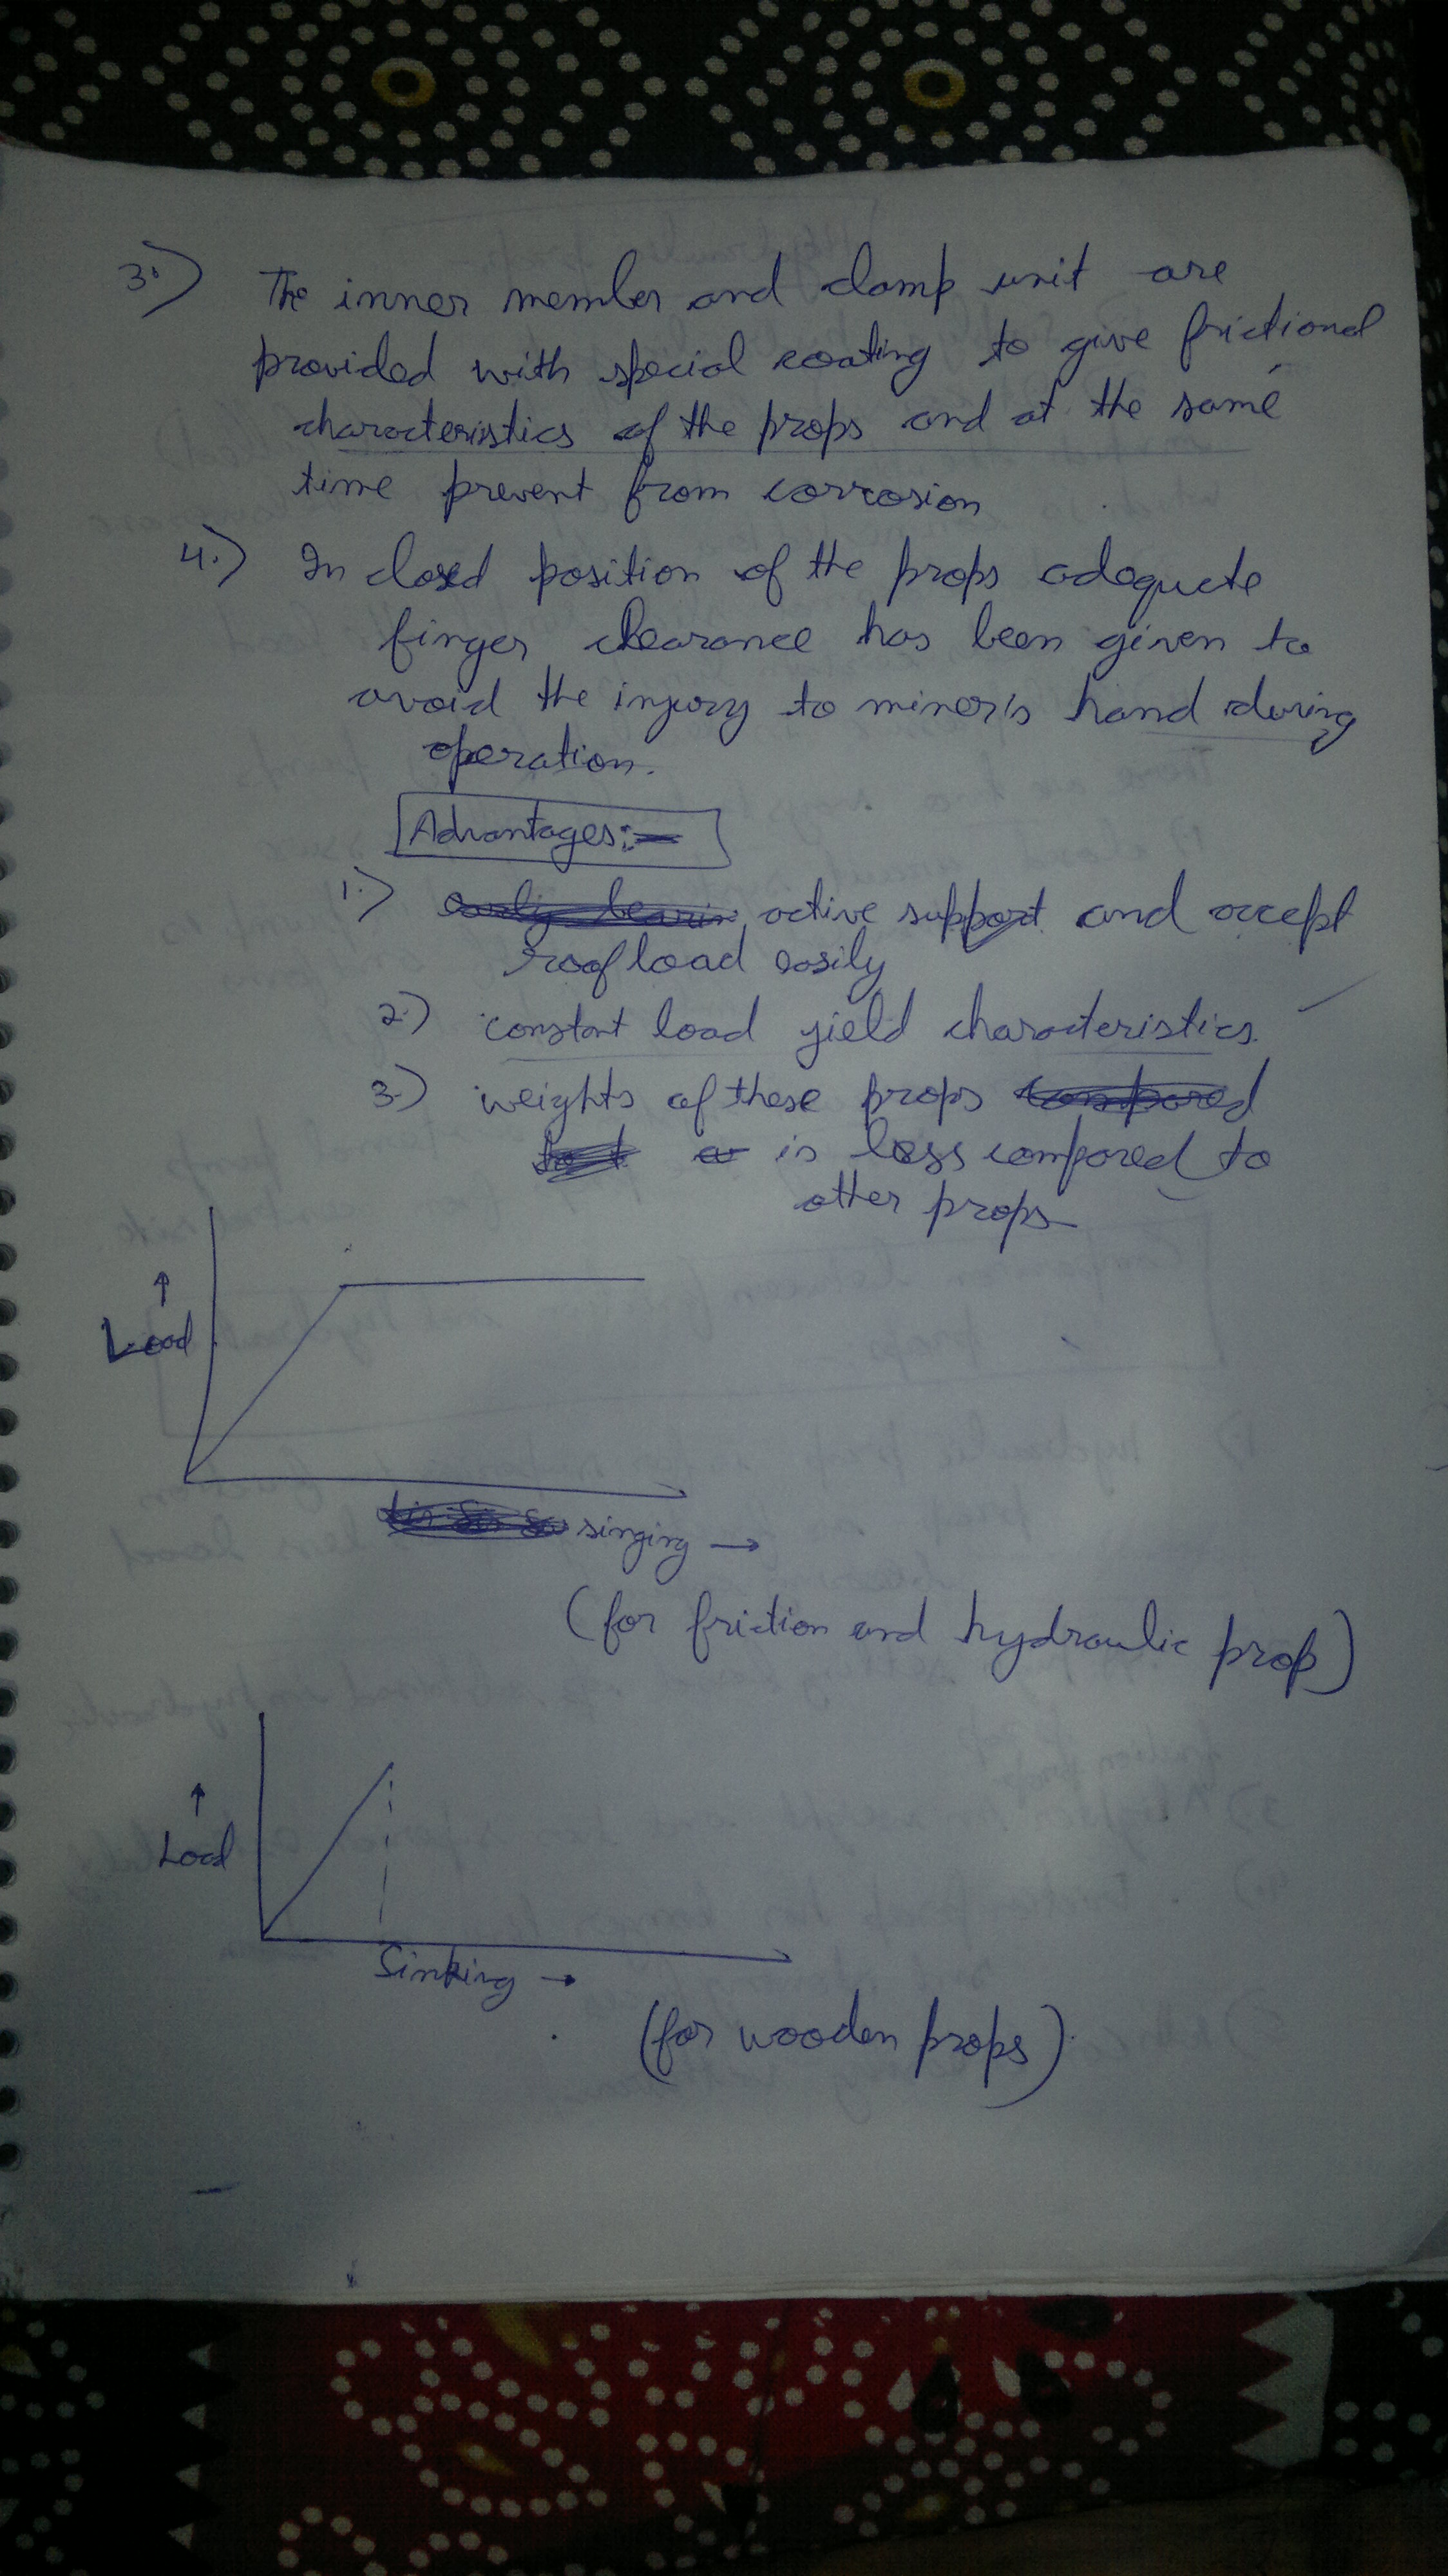 3.) The inner member and clamp unit are
provided with special coating to give frictional
characteristics of the props and at the same
time prevent from corrosion
4.) In closed position of the props adequete
finger clearance has been given to
avoid the injury to miner's hand during
operation.
Advantages:-
1.) active support and accept
roof load easily
2.) constant load yield characteristics.
3.) weights of these props compared
is less compared to
other props
Load
singing →
(for friction and hydraulic prop)
Load
Sinking →
(for wooden props)